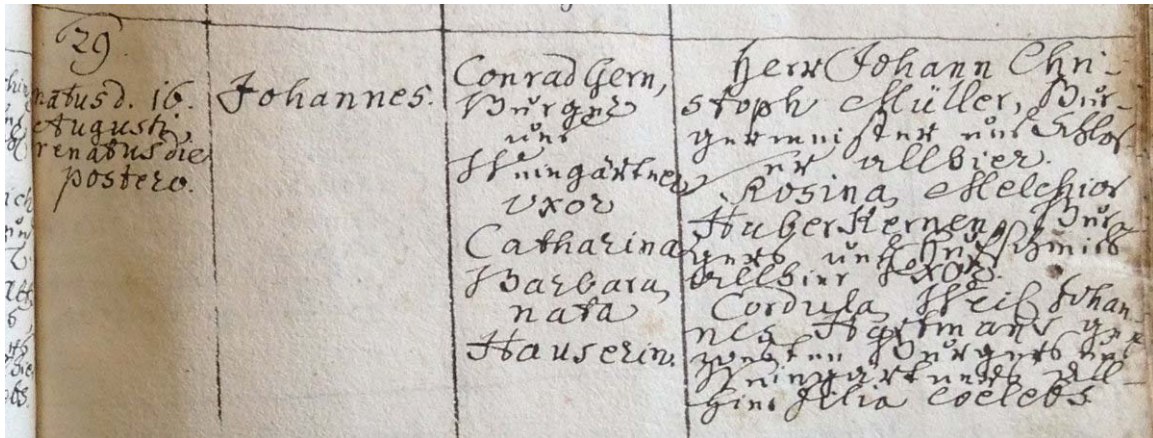 29.
natus d. 16.
Augusti,
renatus die
postero.
Johannes.
Conrad Gern,
Burger
und
Weingärtner
uxor
Catharina
Barbara,
nata
Hauserin.
Herr Johann Chri-
stoph Müller, Bur-
germeister und Schlos-
ser allhier.
Rosina, Melchior
Huber Bur-
gers und schmid
allhier uxor.
Cordula, Johan-
nes ge-
westen Burgers und
Weingärtners all-
hier filia coelebs